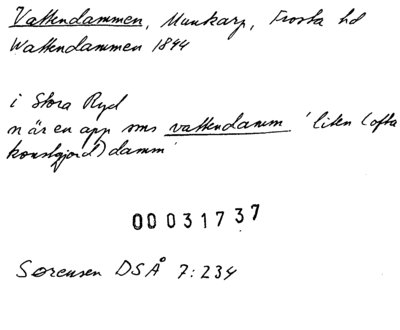 Vattendammen, Munkarp, Frosta hd
Wattendammen 1844
i Stora Ryd
n är en app sms vattendamm 'liten (ofta
konstgjord) damm'
00031737
Sørensen DSÅ 7:234